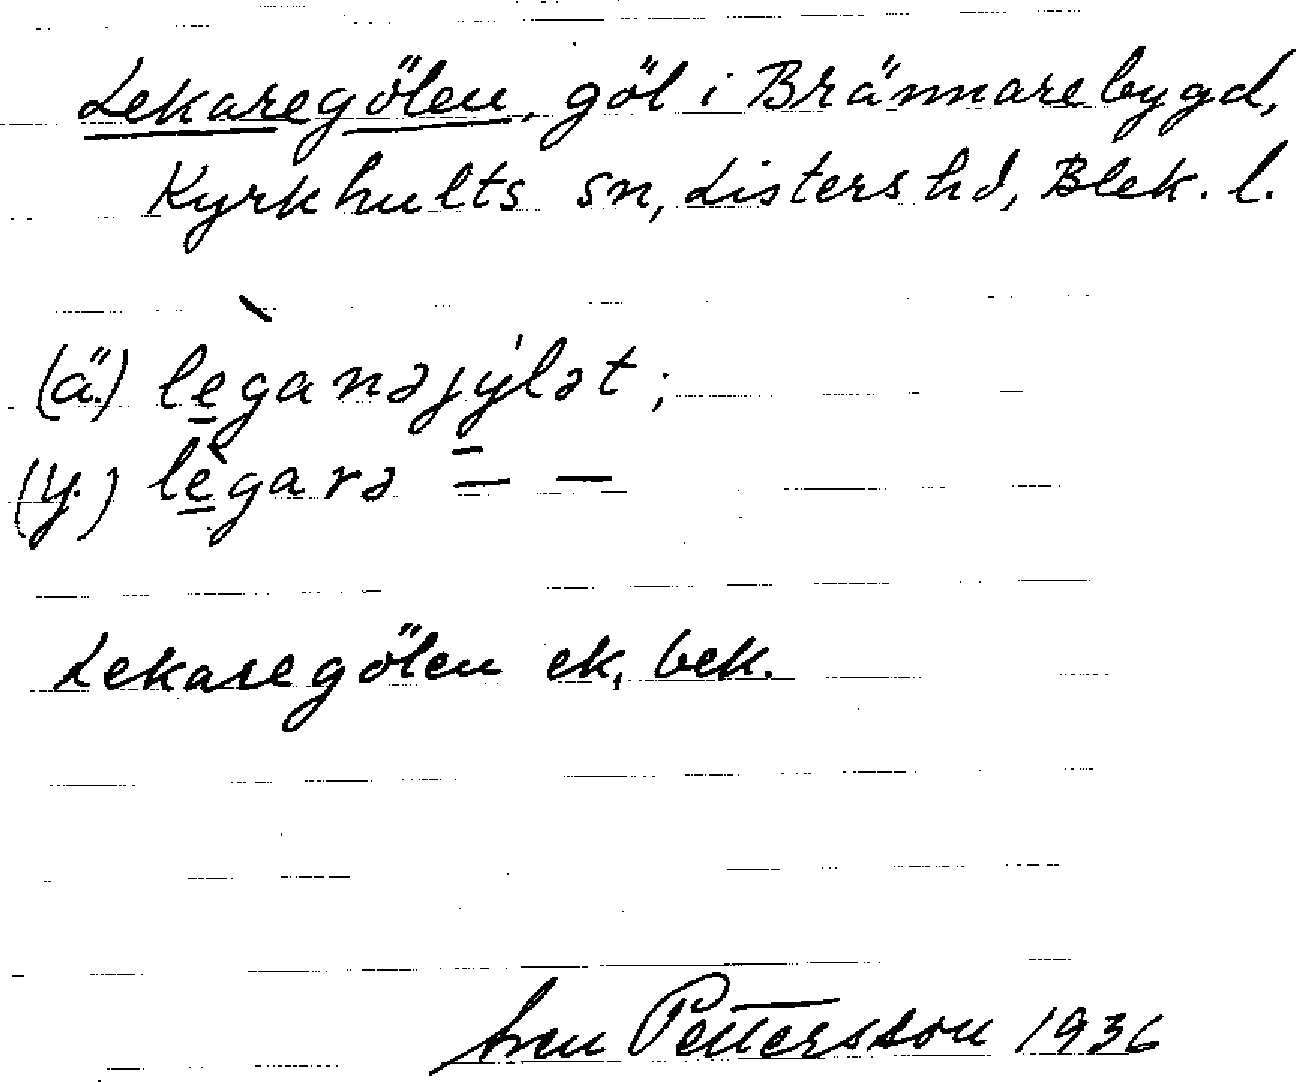 Lekaregölen, göl i Brännarebygd,
Kyrkhults sn, Listers hd, Blek. l.
(ä.) lèganəjýlət;
(y.) lègarə — —
Lekaregölen ek. bek.
Sven Pettersson 1936